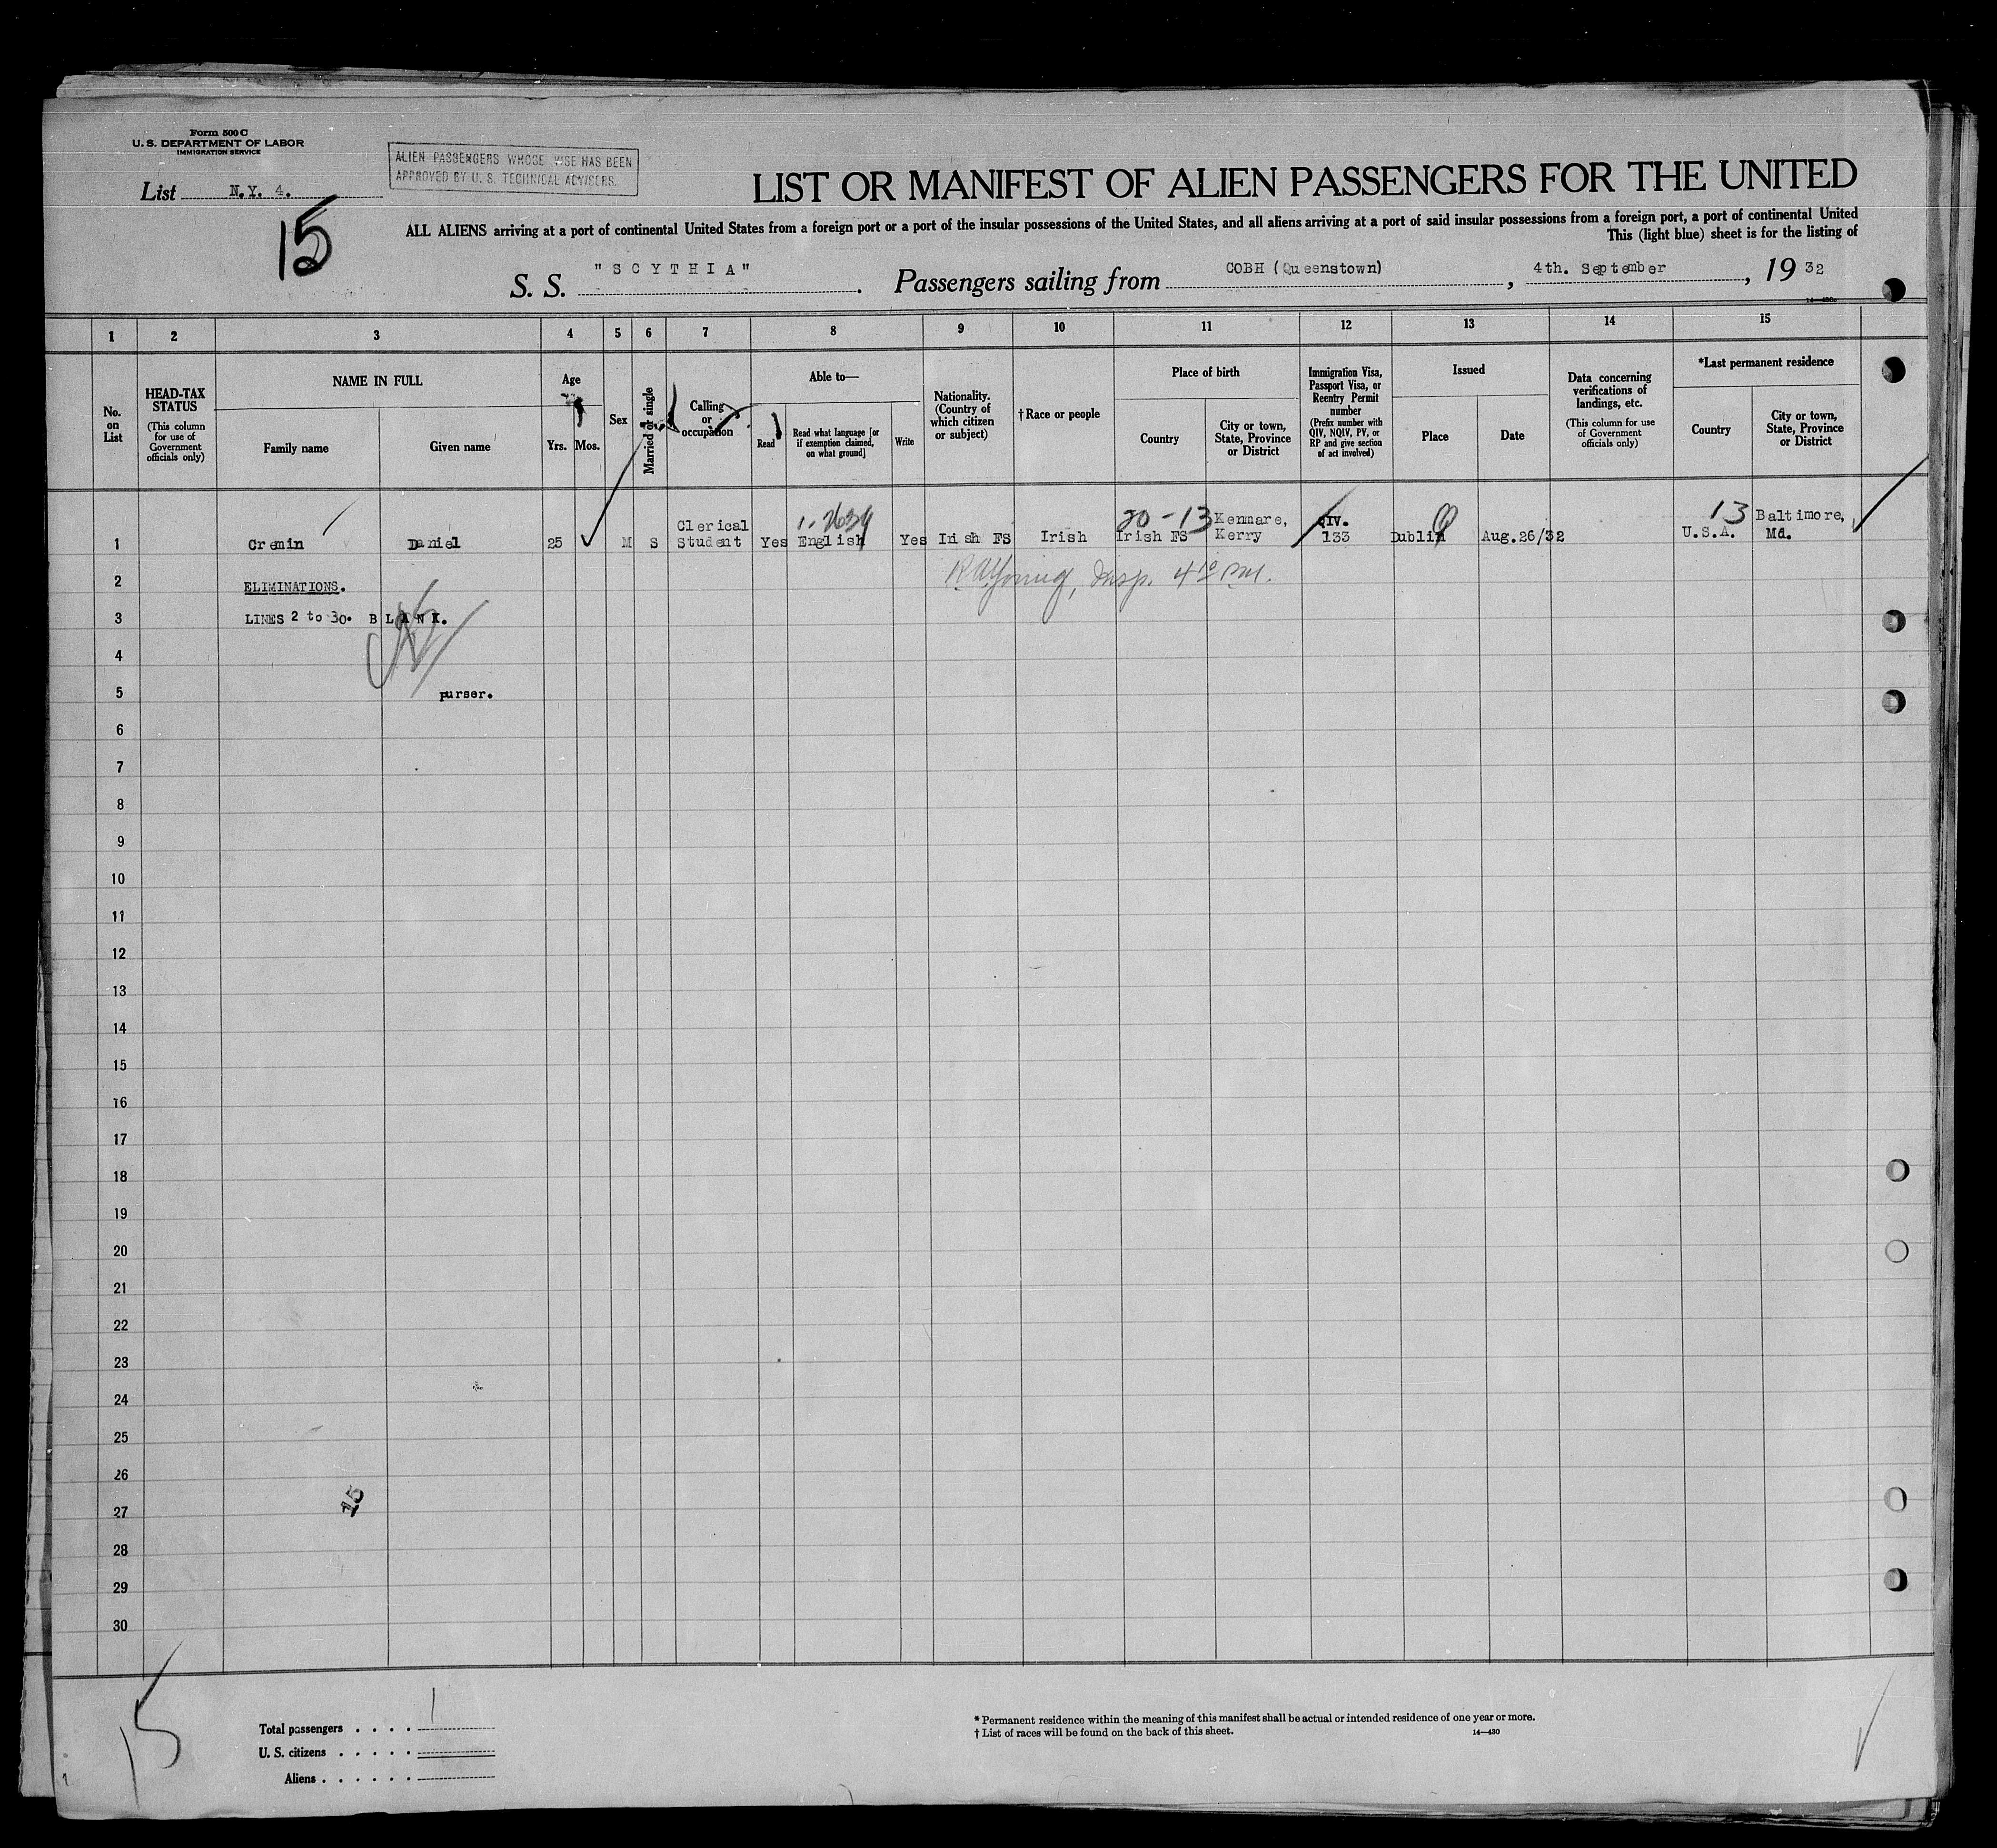 Form 500 C
U. S. DEPARTMENT OF LABOR
IMMIGRATION SERVICE
ALIEN PASSENGERS WHOSE VISE HAS BEEN
APPROVED BY U. S. TECHNICAL ADVISERS.
List N.Y. 4.
15
LIST OR MANIFEST OF ALIEN PASSENGERS FOR THE UNITED
ALL ALIENS arriving at a port of continental United States from a foreign port or a port of the insular possessions of the United States, and all aliens arriving at a port of said insular possessions from a foreign port, a port of continental United
This (light blue) sheet is for the listing of
S. S. "SCYTHIA". Passengers sailing from COBH (Queenstown), 4th. September, 1932
14—430
1 2 3 4 5 6 7 8 9 10 11 12 13 14 15
No. on List
HEAD-TAX STATUS
(This column for use of Government officials only)
NAME IN FULL
Family name
Given name
Age
Yrs. Mos.
Sex
Married or single
Calling or occupation
Able to—
Read
Read what language [or if exemption claimed, on what ground]
Write
Nationality. (Country of which citizen or subject)
† Race or people
Place of birth
Country
City or town, State, Province or District
Immigration Visa, Passport Visa, or Reentry Permit number
(Prefix number with QIV, NQIV, PV, or RP and give section of act involved)
Issued
Place
Date
Data concerning verifications of landings, etc.
(This column for use of Government officials only)
*Last permanent residence
Country
City or town, State, Province or District
1 Cremin Daniel 25 M S Clerical Student Yes English Yes Irish FS Irish Irish FS Kenmare, Kerry QIV. 133 Dublin Aug.26/32 U.S.A. Baltimore, Md.
20-13
13
2 ELIMINATIONS.
Insp. 4 10 PM.
3 LINES 2 to 30. BLANK.
4
5 purser.
6
7
8
9
10
11
12
13
14
15
16
17
18
19
20
21
22
23
24
25
26
15
27
28
29
30
15
Total passengers . . . . 1
U. S. citizens . . . . .
Aliens . . . . . .
* Permanent residence within the meaning of this manifest shall be actual or intended residence of one year or more.
† List of races will be found on the back of this sheet.
14—430